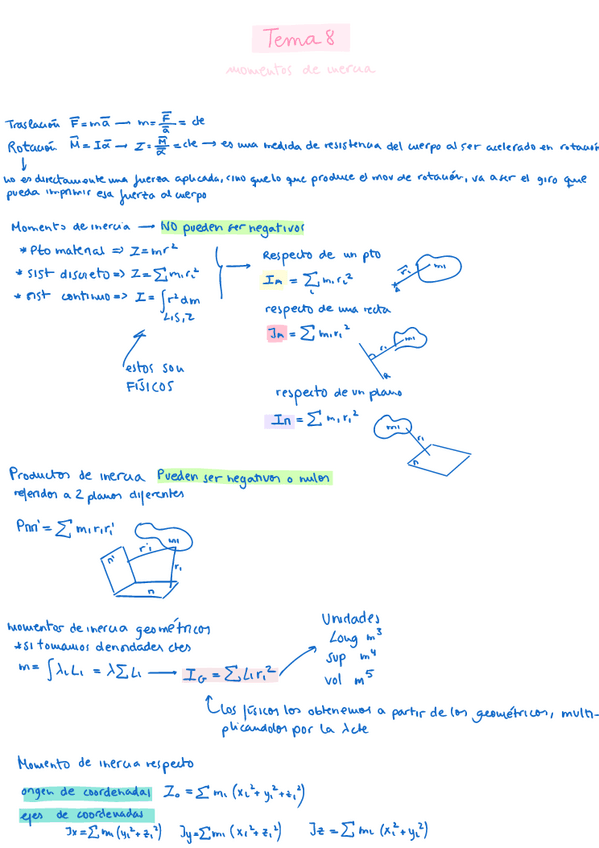 Tema 8
momentos de inercia
Traslación F̅=ma̅ → m = F̅/a̅ = cte
Rotación M̅ = Iα̅ → I = M̅/α̅ = cte → es una medida de resistencia del cuerpo al ser acelerado en rotación
no es directamente una fuerza aplicada, sino que lo que produce el mov de rotación, va a ser el giro que
pueda imprimir esa fuerza al cuerpo
Momento de inercia → NO pueden ser negativos
* Pto material => I=mr²
* sist discreto => I=∑mᵢrᵢ²
* sist continuo => I=∫r²dm
L,S,V
estos son
FÍSICOS
Respecto de un pto
= ∑ mᵢrᵢ²
i
rᵢ mᵢ
respecto de una recta
= ∑ mᵢrᵢ²
rᵢ mᵢ
respecto de un plano
= ∑ mᵢrᵢ²
mᵢ
rᵢ
Productos de inercia Pueden ser negativos o nulos
referidos a 2 planos diferentes
= ∑ mᵢrᵢrᵢ'
rᵢ' mᵢ
rᵢ
momentos de inercia geométricos
* si tomamos densidades ctes
m= ∫λᵢLᵢ = λ∑Lᵢ → I_G = ∑Lᵢrᵢ²
Unidades
Long m³
sup m⁴
vol m⁵
Los físicos los obtenemos a partir de los geométricos, multi-
plicandolos por la λcte
Momento de inercia respecto
origen de coordenadas I₀ = ∑mᵢ (xᵢ²+yᵢ²+zᵢ²)
ejes de coordenadas
Ix=∑mᵢ(yᵢ²+zᵢ²) Iy=∑mᵢ(xᵢ²+zᵢ²) Iz=∑mᵢ(xᵢ²+yᵢ²)